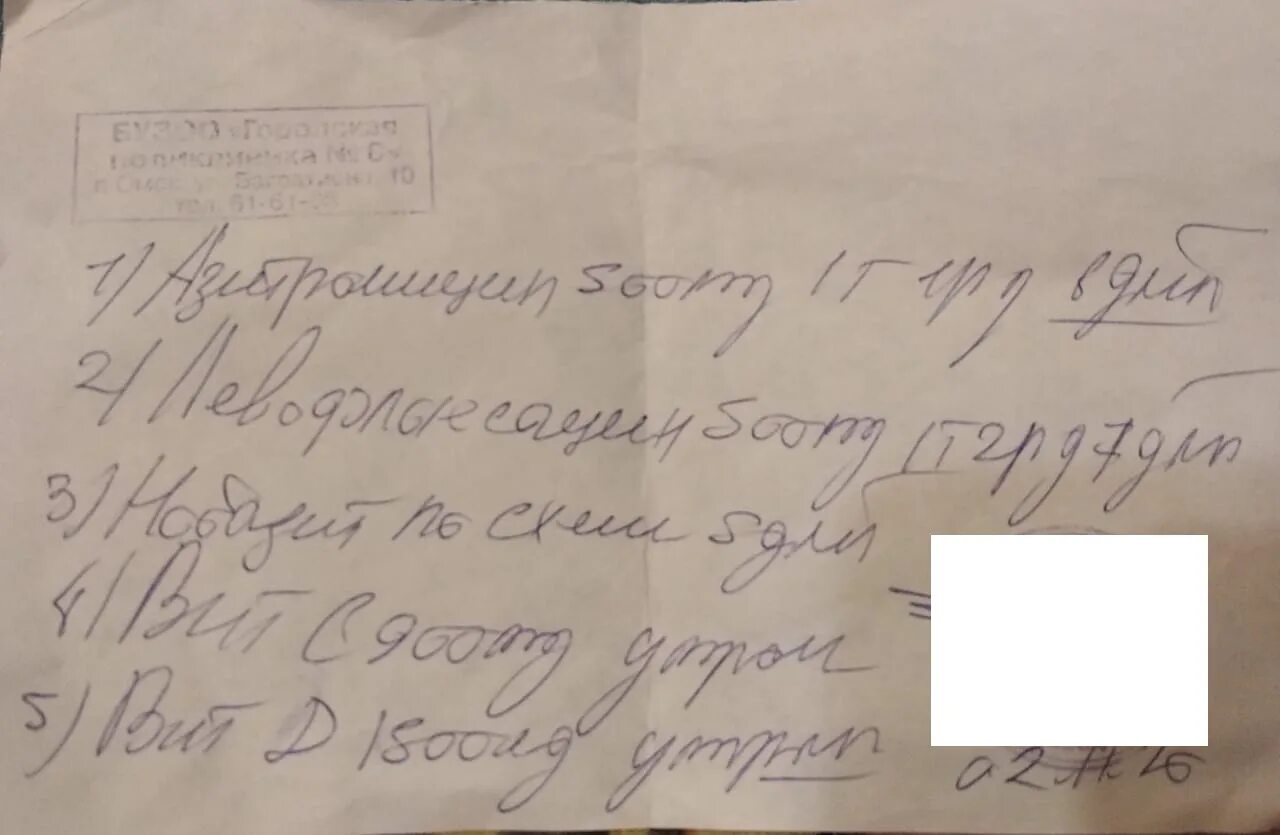 БУЗОО «Городская
поликлиника № 6»
г. Омск, ул. Багратиона, 10
тел. 61-61-
1) Азитромицин 500mg 1т 1р д 8 дней
2) Левофлоксацин 500mg 1т 2р д 7 дней
3) Нобазит по схеме 5 дней
4) Вит С 900mg утром
5) Вит D 1500ед утром